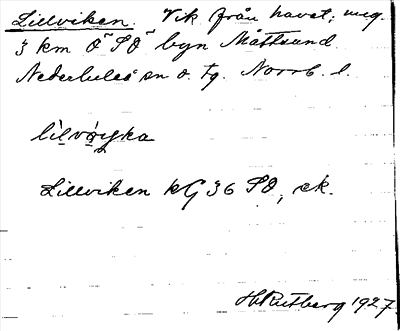 Lillviken. Vik från havet, meg.
3 km O˜SO˜ byn Måttsund
Nederluleå sn o. tg. Norrb. l.
lìlvɑ̀yka
Lillviken kG 36 SO, ek.
H. Rutberg 1927.